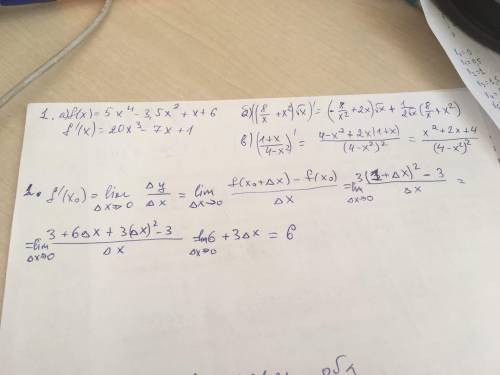 1. а) f(x) = 5x⁴ - 3,5x² + x + 6
f'(x) = 20x³ - 7x + 1
б) ((8/x + x²)√x)' = (-8/x² + 2x)√x + 1/(2√x) (8/x + x²)
в) ((1+x)/(4-x²))' = (4-x²+2x(1+x))/(4-x²)² = (x²+2x+4)/(4-x²)²
2. f'(x₀) = lim Δx→0 Δy/Δx = lim Δx→0 (f(x₀+Δx) - f(x₀))/Δx = lim Δx→0 (3(1+Δx)² - 3)/Δx =
= lim Δx→0 (3 + 6Δx + 3(Δx)² - 3)/Δx = lim Δx→0 6 + 3Δx = 6